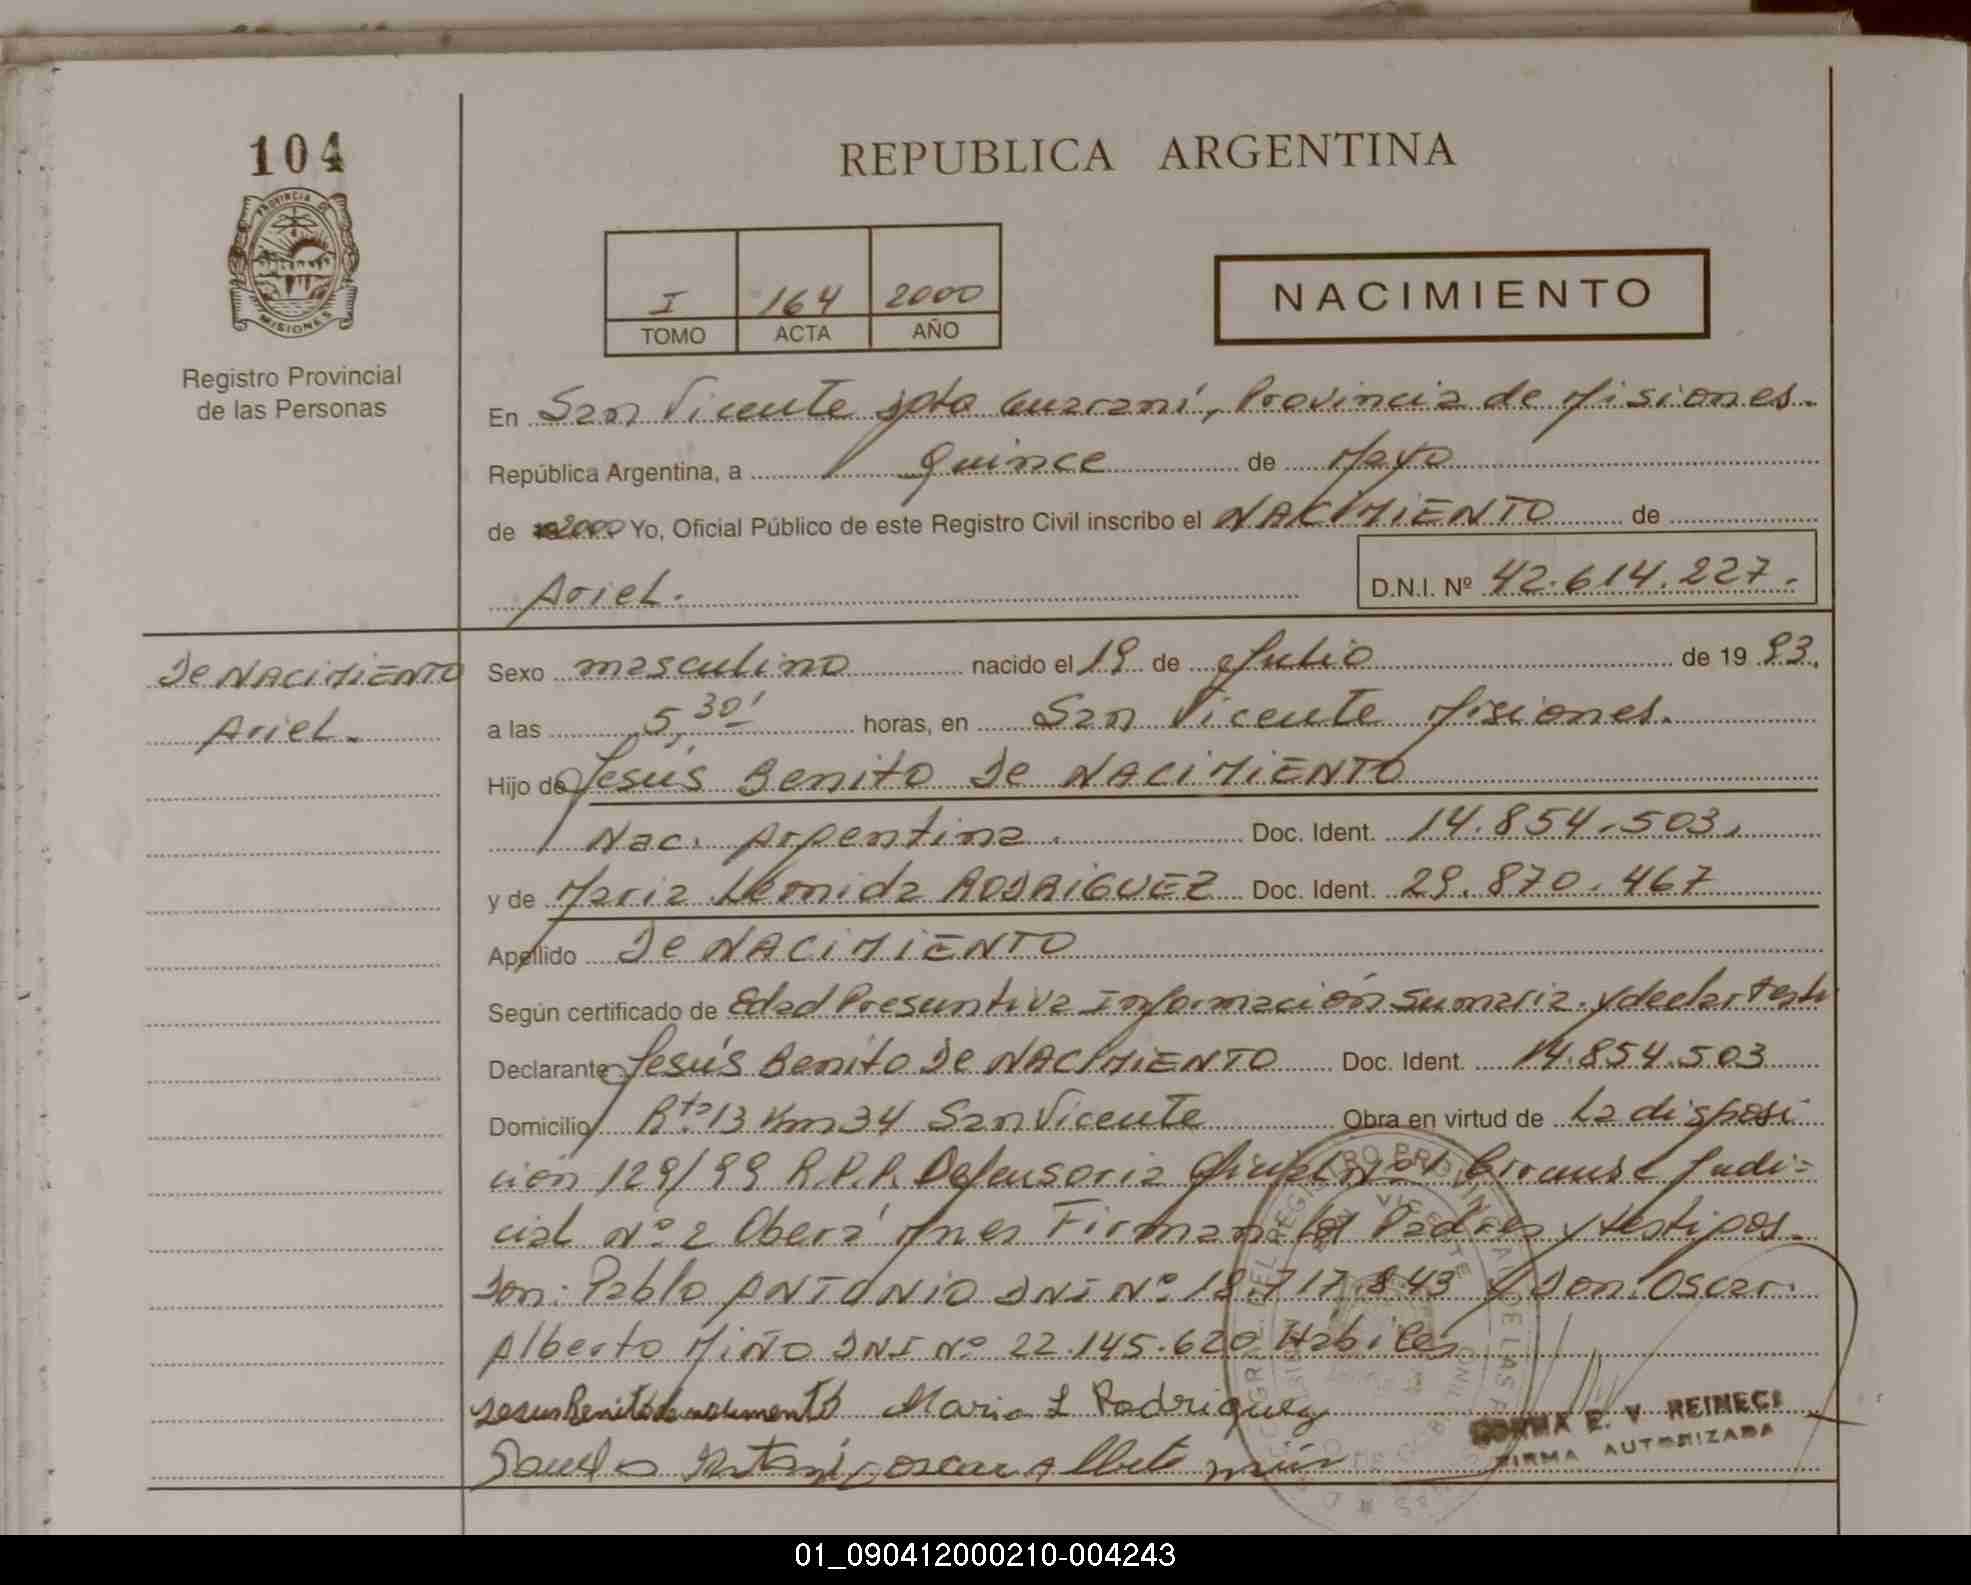 104
REPUBLICA ARGENTINA
PROVINCIA DE
MISIONES
Registro Provincial
de las Personas
I 164 2000
TOMO ACTA AÑO
NACIMIENTO
En San Vicente Dpto Guaraní, Provincia de Misiones.
República Argentina, a Quince de Mayo
de 2000 Yo, Oficial Público de este Registro Civil inscribo el NACIMIENTO de
Ariel. D.N.I. Nº 42.614.227.
De NACIMIENTO
Ariel.
Sexo masculino nacido el 19 de Julio de 19 93.
a las 5,30' horas, en San Vicente Misiones.
Hijo de Jesús Benito De NACIMIENTO
Nac. Argentina. Doc. Ident. 14.854.503.
y de Maria Leonida RODRIGUEZ Doc. Ident. 29.870.467
Apellido De NACIMIENTO
Según certificado de Edad Presuntiva Información Sumaria. y declar. testi
Declarante Jesús Benito De NACIMIENTO Doc. Ident. 14.854.503
Domicilio Rta 13 Km 34 San Vicente Obra en virtud de La disposi
ción 129/99 R.P.P. Defensoria Oficial Nº 1 Circunsc Judi=
cial Nº 2 Oberá Mnes Firman los Padres y testigos.
Don: Pablo ANTONIO DNI Nº 18.717.843 y Don: Oscar.
Alberto MiÑO DNI Nº 22.145.620 Habiles
Jesus Benito de nacimento Maria L Rodriguez
oscar Alberto
NORMA E. V. REINECI
FIRMA AUTORIZADA
01_090412000210-004243